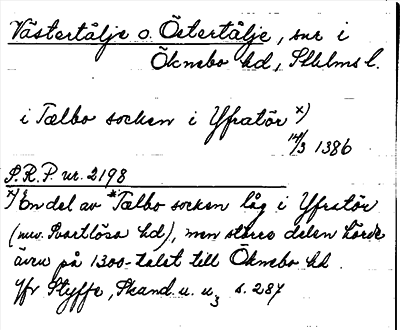 Västertälje o. Östertälje, snr i
Öknebo hd, Sthlms l.
i Tælbo socken i Yfratör x)
14/3 1386
S.R.P. nr. 2198
x) En del av *Tælbo socken låg i Yfratör
(nuv. Svartlösa hd), men större delen hörde
även på 1300-talet till Öknebo hd.
Jfr Styffe, Skand. u. u3 s. 287